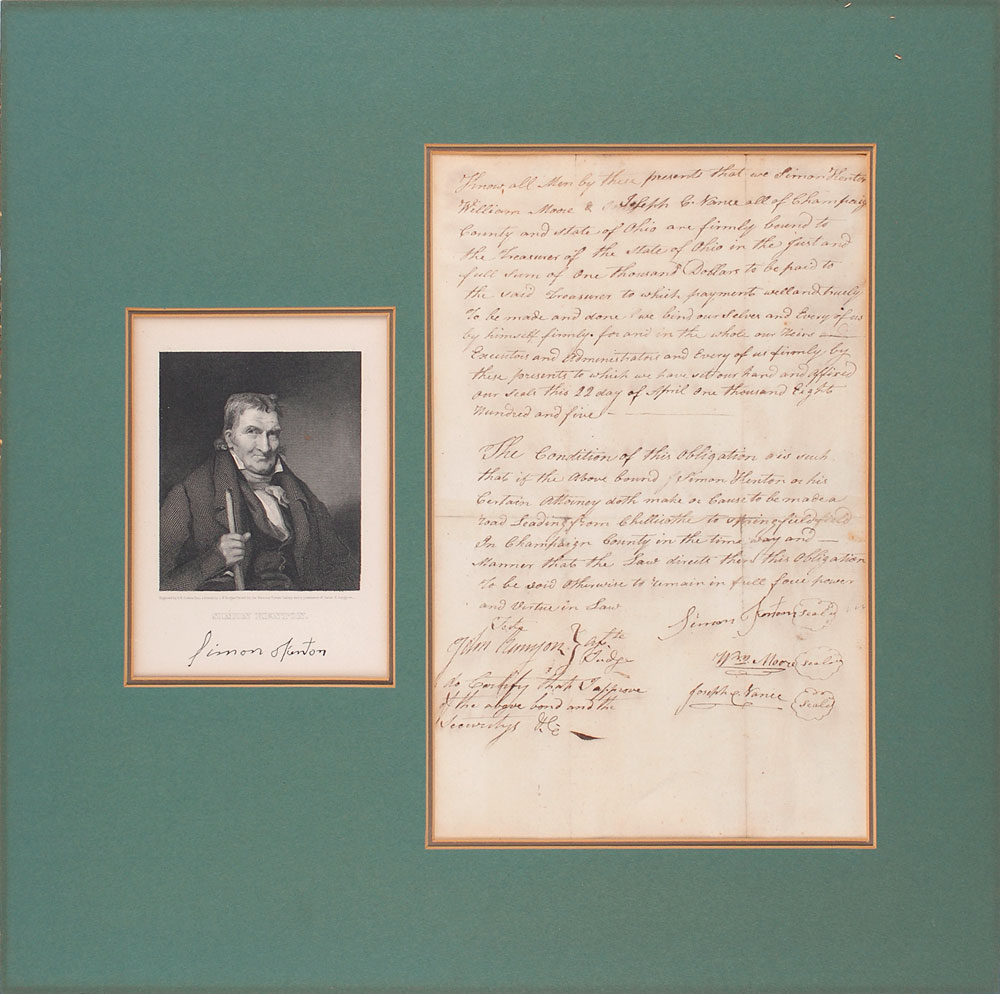 SIMON KENTON.
Simon Kenton
Know all Men by these presents that we Simon Kenton
William Moore & Joseph C. Vance all of Champaig
County and state of Ohio are firmly bound to
the Treasurer of the State of Ohio in the just and
full Sum of One thousand Dollars to be paid to
the said Treasurer to which payment well and truely
To be made and done we bind our Selves and Every of us
by himself firmly for and in the whole our Heirs
Executors and Administrators and Every of us firmly by
these presents to which we have set our hand and affixed
our seals this 22 day of April One thousand Eight
Hundred and five
The Condition of this Obligation is such
that if the Above bound Simon Kenton or his
Certain Attorney doth make or Cause to be made a
road Leading from Chillisothe to Springfield
In Champaign County in the time way and
Manner that the Law directs then this Obligation
To be void Otherwise to remain in full force power
and Virtue in Law
Simon Kenton seald
John Runyon
Judge
Wm Moore seald
do Certify that I approve
Joseph C. Vance seald
of the above bond and the
Securitys &c